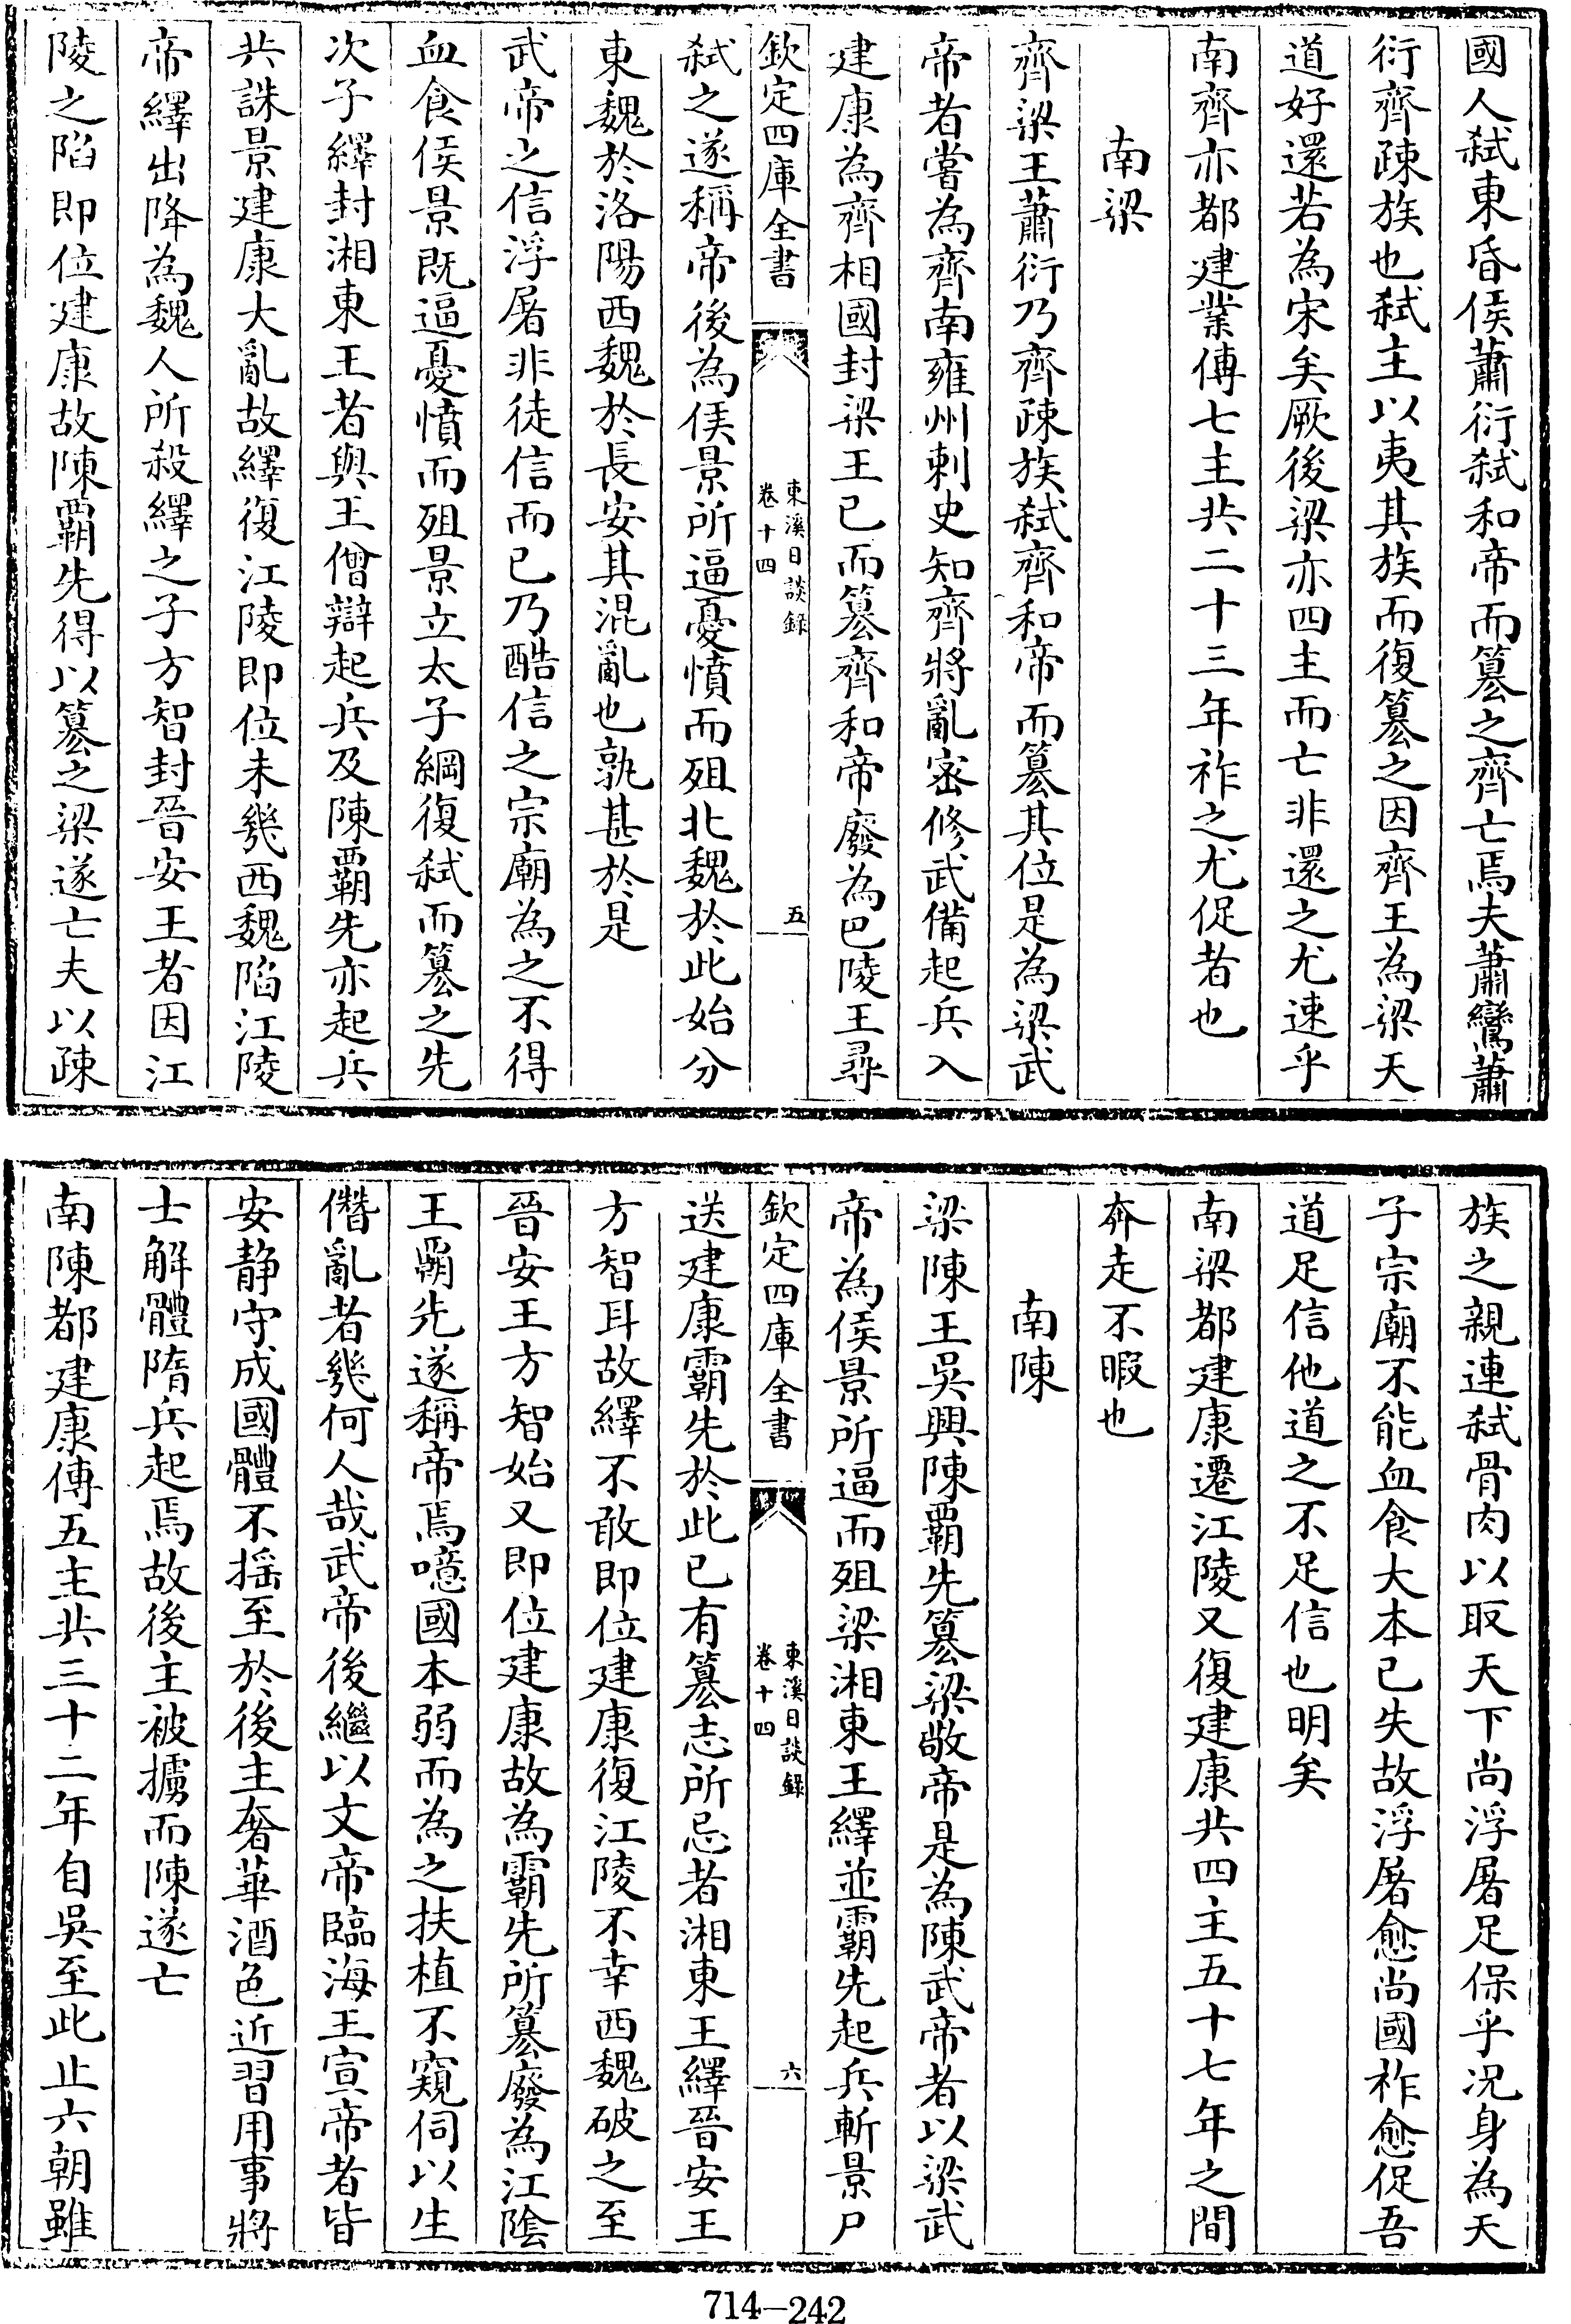 國人弑東昏侯蕭衍弑和帝而簒之齊亡焉夫蕭鸞蕭
衍齊疎族也弑主以夷其族而復簒之因齊王為梁天
道好還若為宋矣厥後梁亦四主而亡非還之尤速乎
南齊亦都建業傳七主共二十三年祚之尤促者也
南梁
齊梁王蕭衍乃齊疎族弑齊和帝而簒其位是為梁武
帝者嘗為齊南雍州刺史知齊將亂密修武備起兵入
建康為齊相國封梁王已而簒齊和帝廢為巴陵王尋
欽定四庫全書
東溪日談錄
卷十四
五
弑之遂稱帝後為侯景所逼憂憤而殂北魏於此始分
東魏於洛陽西魏於長安其混亂也孰甚於是
武帝之信浮屠非徒信而已乃酷信之宗廟為之不得
血食侯景既逼憂憤而殂景立太子綱復弑而簒之先
次子繹封湘東王者與王僧辯起兵及陳覇先亦起兵
共誅景建康大亂故繹復江陵即位未幾西魏陷江陵
帝繹出降為魏人所殺繹之子方智封晉安王者因江
陵之陷即位建康故陳覇先得以簒之梁遂亡夫以疎
族之親連弑骨肉以取天下尚浮屠足保乎况身為天
子宗廟不能血食大本已失故浮屠愈尚國祚愈促吾
道足信他道之不足信也明矣
南梁都建康遷江陵又復建康共四主五十七年之間
奔走不暇也
南陳
梁陳王吳興陳覇先簒梁敬帝是為陳武帝者以梁武
帝為侯景所逼而殂梁湘東王繹並霸先起兵斬景尸
欽定四庫全書
東溪日談錄
卷十四
六
送建康霸先於此已有簒志所忌者湘東王繹晉安王
方智耳故繹不敢即位建康復江陵不幸西魏破之至
晉安王方智始又即位建康故為霸先所簒廢為江隂
王覇先遂稱帝焉噫國本弱而為之扶植不窺伺以生
僭亂者幾何人哉武帝後繼以文帝臨海王宣帝者皆
安静守成國體不揺至於後主奢華酒色近習用事將
士解體隋兵起焉故後主被擄而陳遂亡
南陳都建康傳五主共三十二年自吳至此止六朝雖
714—242